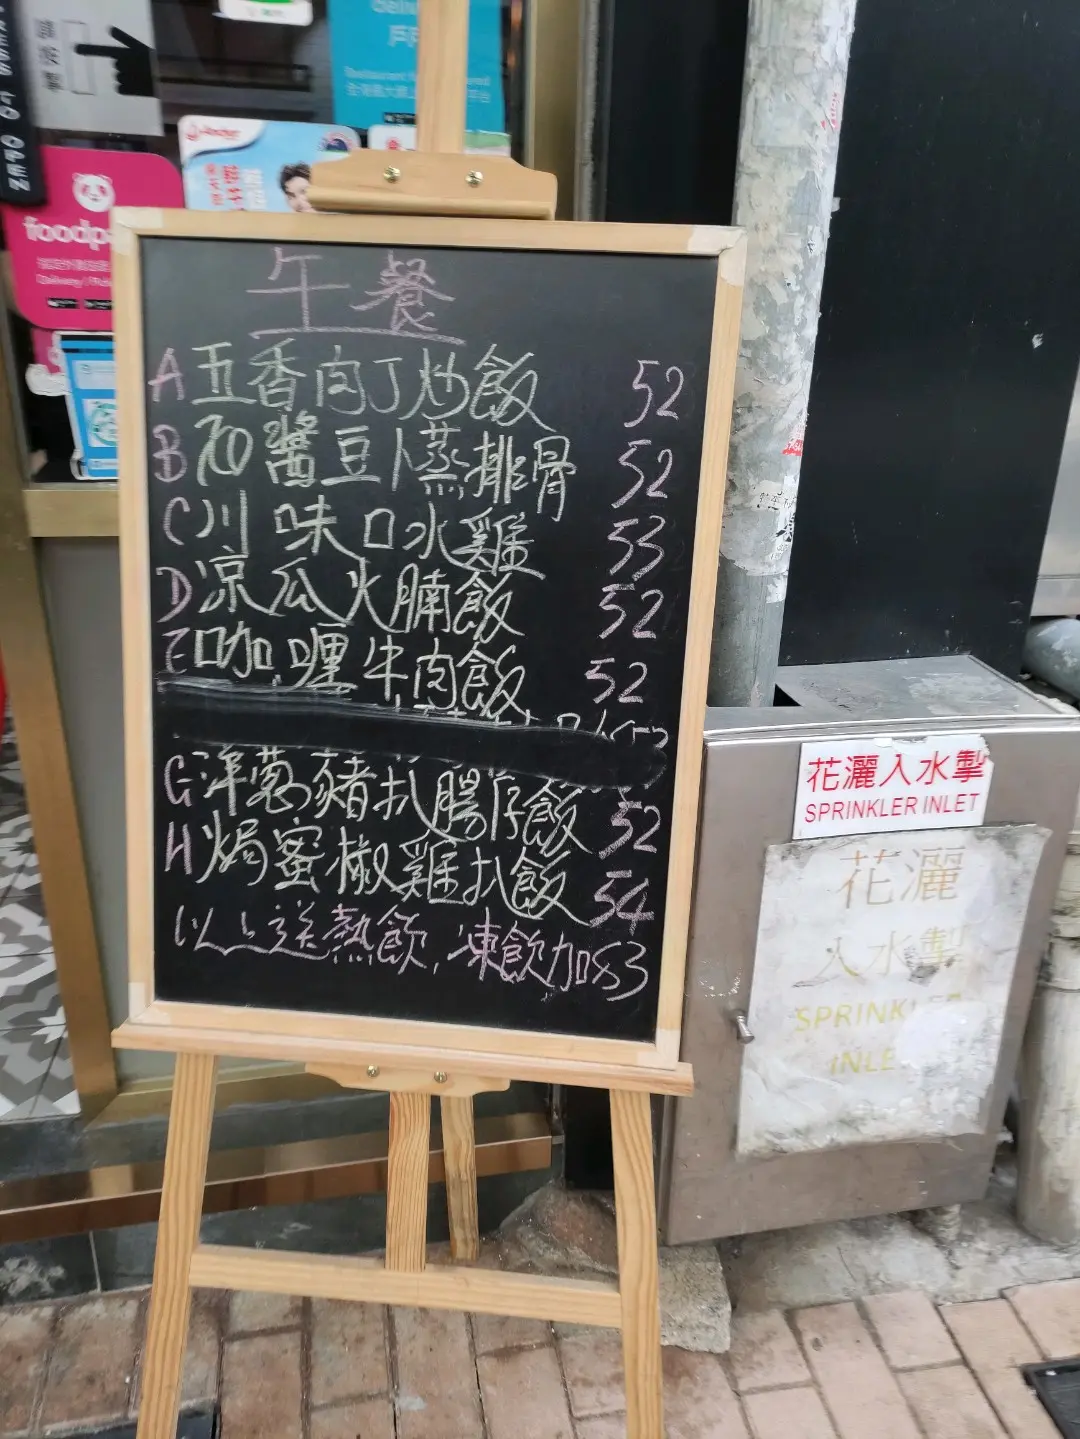 PRESS TO OPEN
請按掣
foodp
Delivery / Pick
Anchor
午餐
A 五香肉丁炒飯 52
B 蒸排骨 52
C 川味口水雞 53
D 凉瓜火腩飯 52
E 咖喱牛肉飯 52
G 洋葱豬扒腸仔飯 52
H 焗蜜椒雞扒飯 54
以上送熱飲,凍飲加$3
花灑入水掣
SPRINKLER INLET
花灑
入水掣
SPRINKLER
INLE